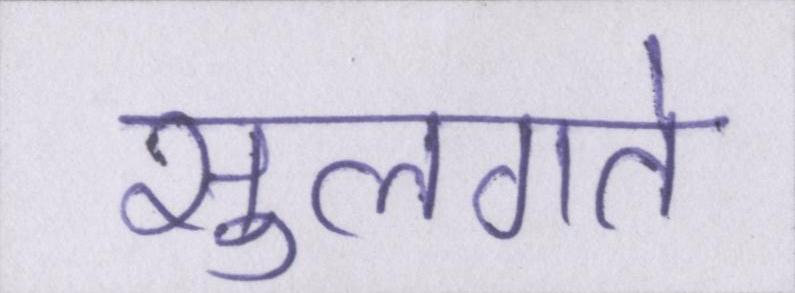 सुलगते